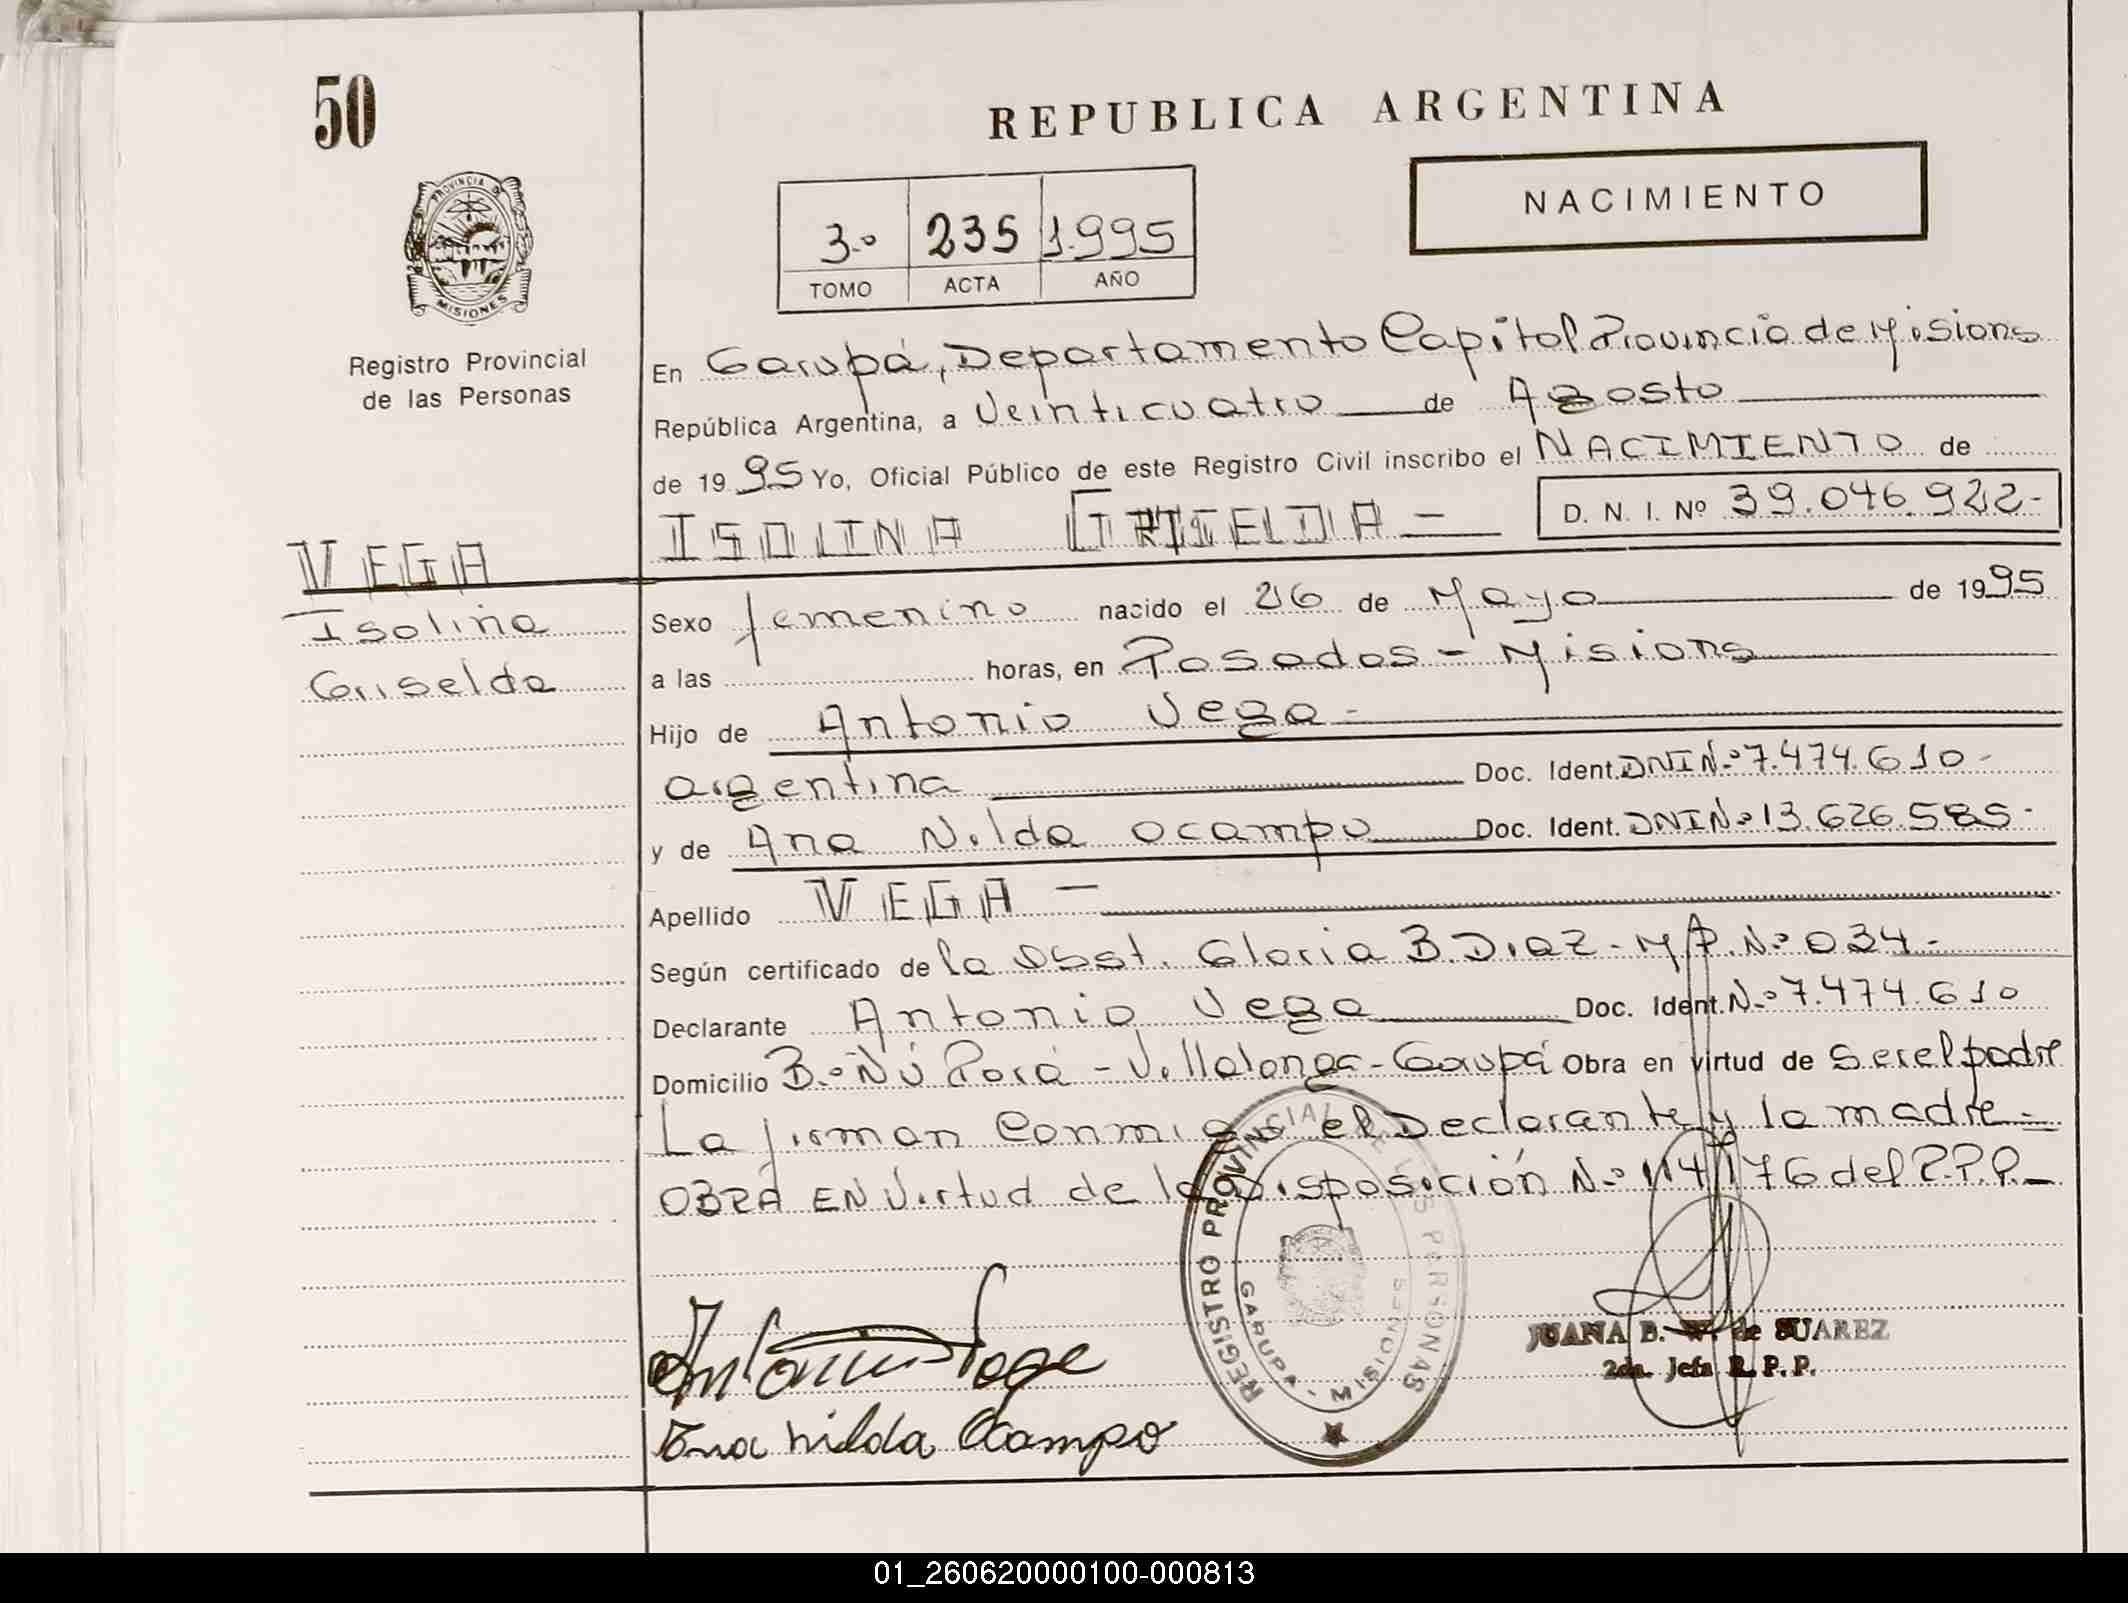 50
REPUBLICA ARGENTINA
NACIMIENTO
3.º 235 1.995
TOMO ACTA AÑO
PROVINCIA DE
MISIONES
Registro Provincial
de las Personas
En Garupá, Departamento Capital Provincia de Misions
República Argentina, a Veinticuatro de Agosto
de 1995 Yo, Oficial Público de este Registro Civil inscribo el NACIMIENTO de
ISOLINA GRISELDA - D. N. I. Nº 39.046.922-
VEGA
Isolina
Griselda
Sexo femenino nacido el 26 de Mayo de 1995
a las horas, en Posadas - Misions
Hijo de Antonio Vega -
argentina Doc. Ident. DNI N.º 7.474.610-
y de Ana Nilda Ocampo Doc. Ident. DNI N.º 13.626.585-
Apellido VEGA -
Según certificado de la Obst. Gloria B. Diaz - M.P. N.º 034-
Declarante Antonio Vega Doc. Ident. N.º 7.474.610
Domicilio B.º Ñú Porá - Villalonga - Garupá Obra en virtud de ser el padre
La firman Conmigo el Declarante y la madre =
OBRA EN Virtud de la Disposición N.º 114/176 del R.P.P.
REGISTRO PROVINCIAL DE LAS PERSONAS
GARUPA - MISIONES
Antonio Vega
Ana Nilda Ocampo
JUANA B. W. de SUAREZ
2da. Jefa R. P. P.
01_260620000100-000813